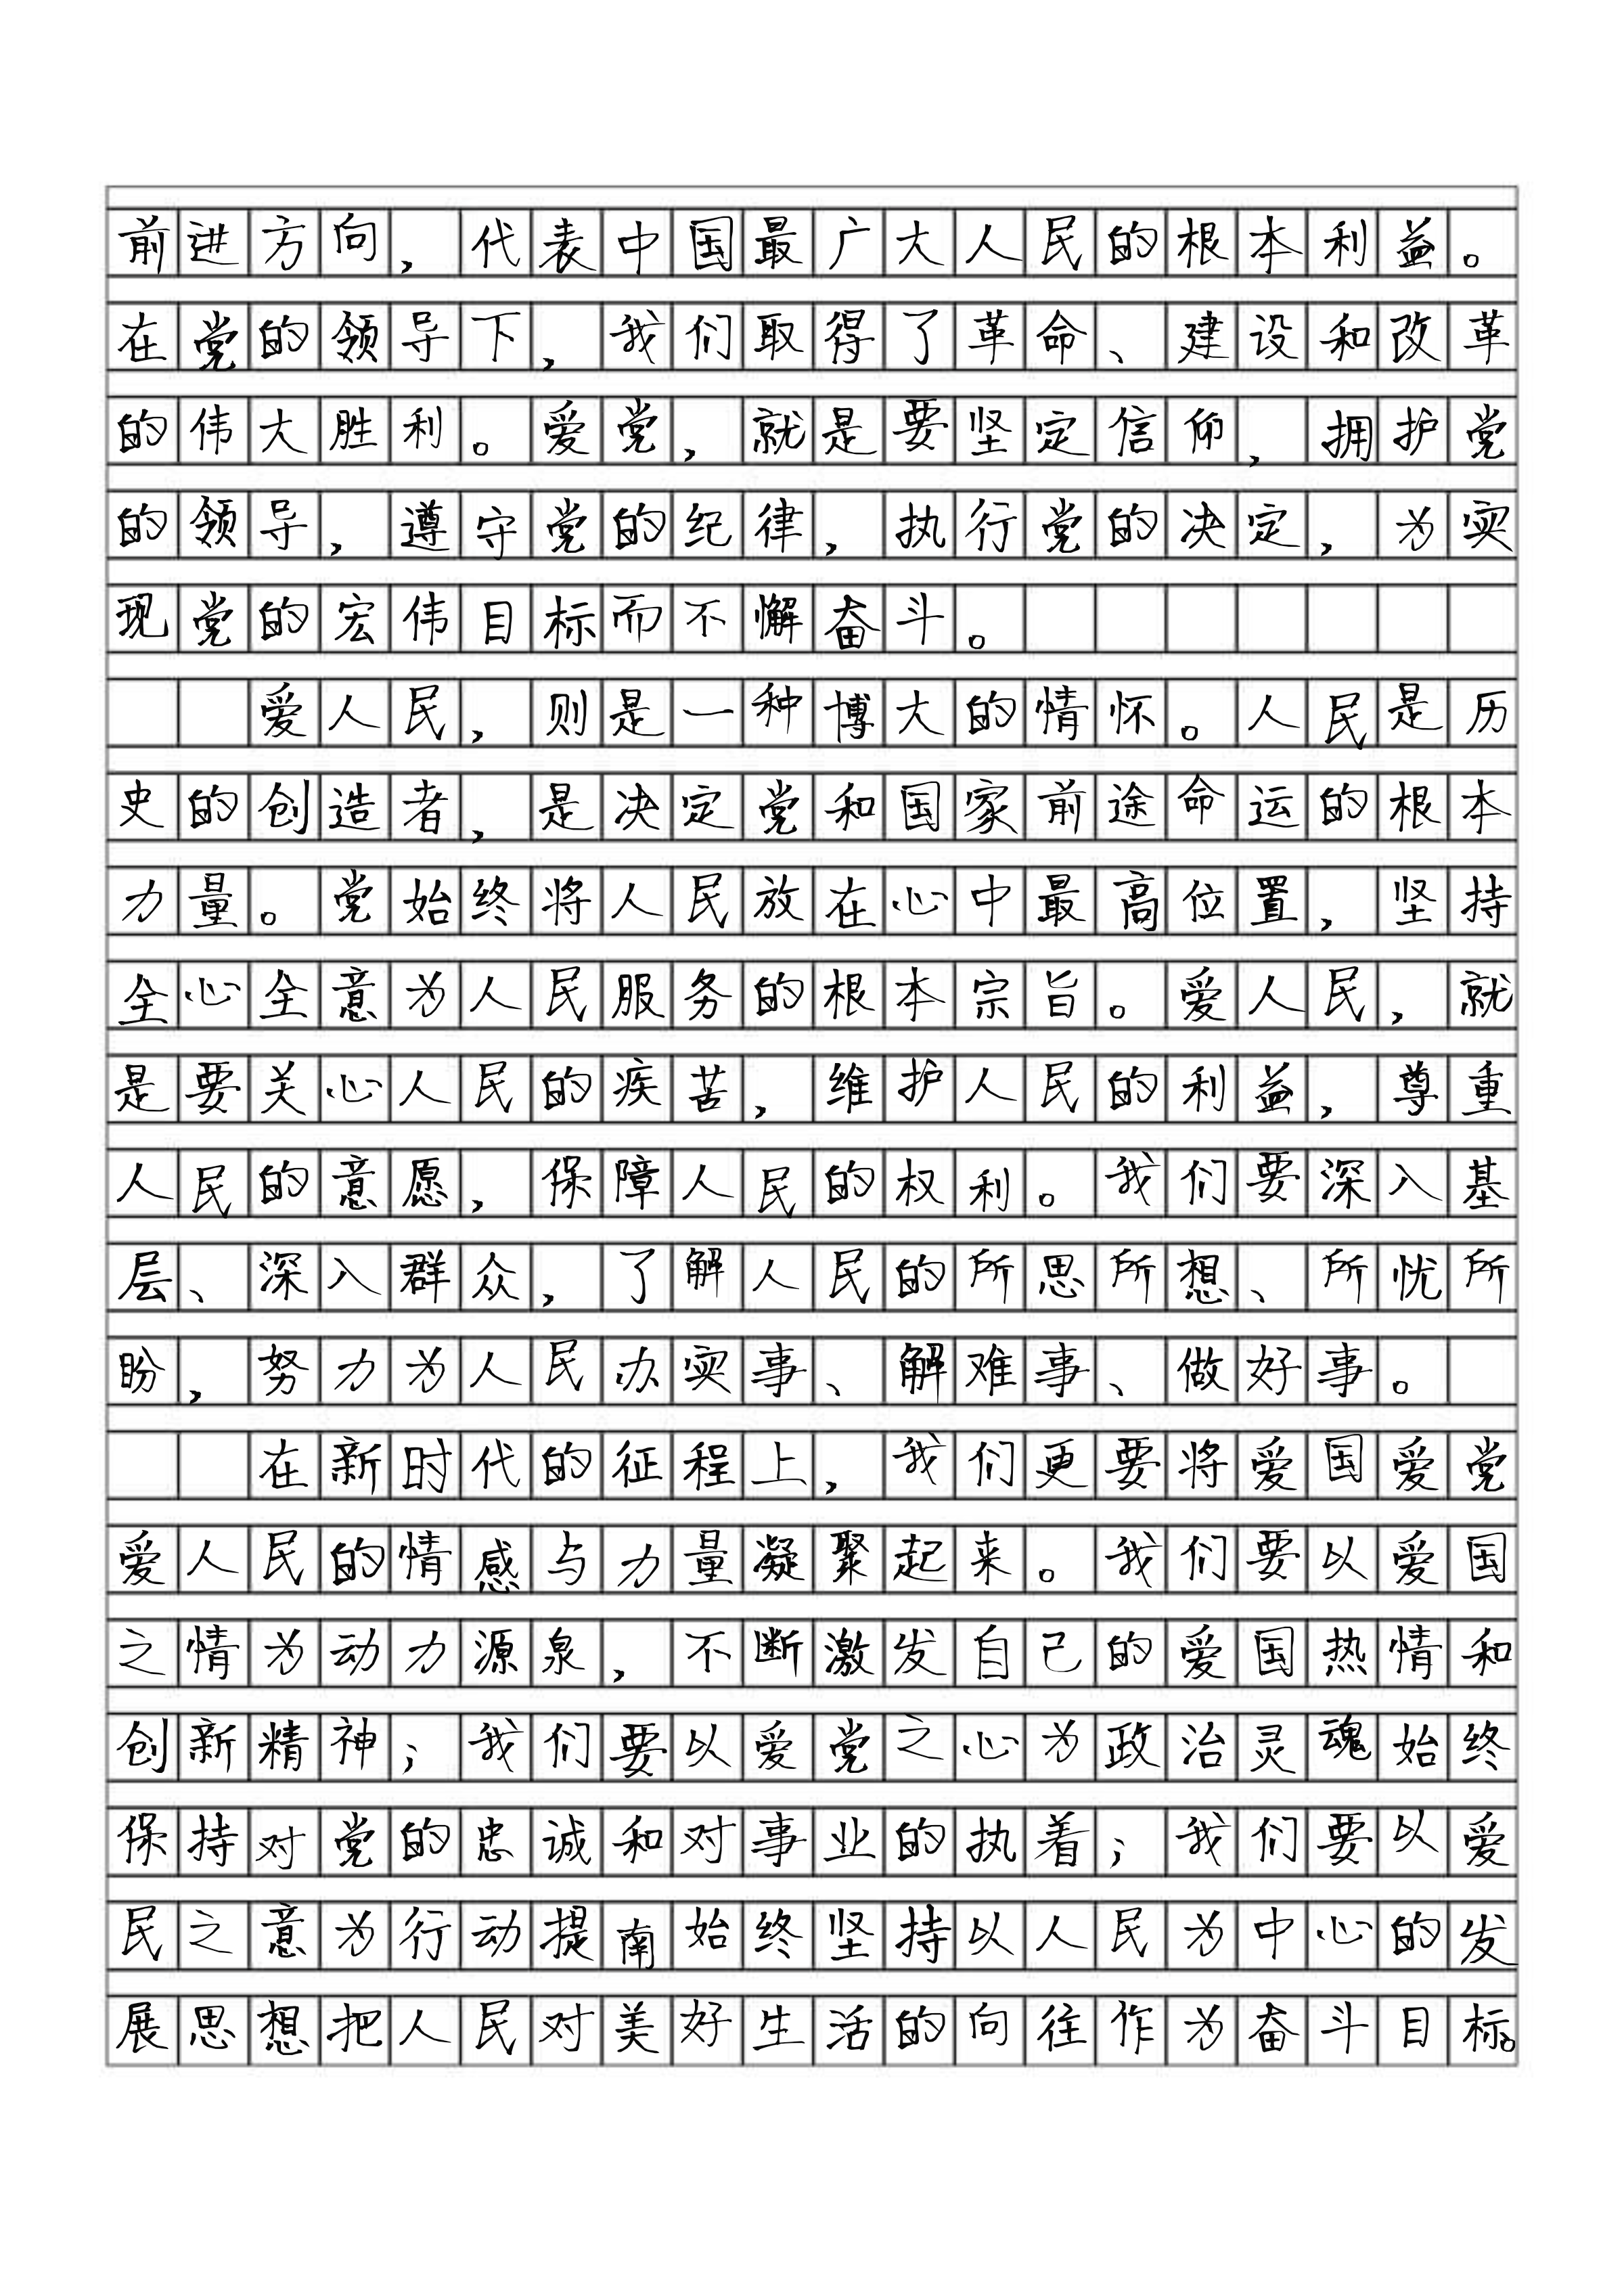 前进方向，代表中国最广大人民的根本利益。
在党的领导下，我们取得了革命、建设和改革
的伟大胜利。爱党，就是要坚定信仰，拥护党
的领导，遵守党的纪律，执行党的决定，为实
现党的宏伟目标而不懈奋斗。
爱人民，则是一种博大的情怀。人民是历
史的创造者，是决定党和国家前途命运的根本
力量。党始终将人民放在心中最高位置，坚持
全心全意为人民服务的根本宗旨。爱人民，就
是要关心人民的疾苦，维护人民的利益，尊重
人民的意愿，保障人民的权利。我们要深入基
层、深入群众，了解人民的所思所想、所忧所
盼，努力为人民办实事、解难事、做好事。
在新时代的征程上，我们更要将爱国爱党
爱人民的情感与力量凝聚起来。我们要以爱国
之情为动力源泉，不断激发自己的爱国热情和
创新精神；我们要以爱党之心为政治灵魂始终
保持对党的忠诚和对事业的执着；我们要以爱
民之意为行动提南始终坚持以人民为中心的发
展思想把人民对美好生活的向往作为奋斗目标。